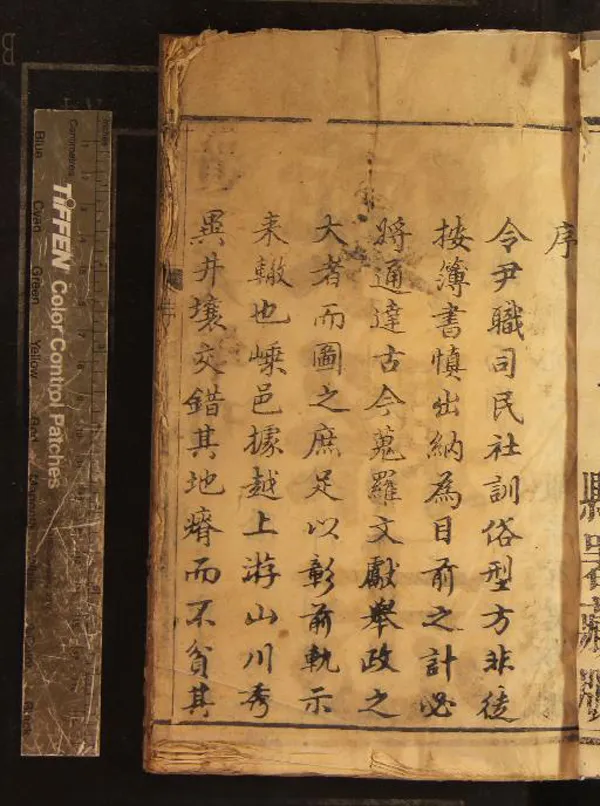 序
令尹職司民社訓俗型方非徒
按簿書慎出納為目前之計必
將通達古今蒐羅文獻舉政之
大者而圖之庶足以彰前軌示
来轍也嵊邑據越上游山川秀
異井壤交錯其地瘠而不貧其
Centimetres
TIFFEN Color Control Patches
Blue
Cyan
Green
Yellow
Red
Black